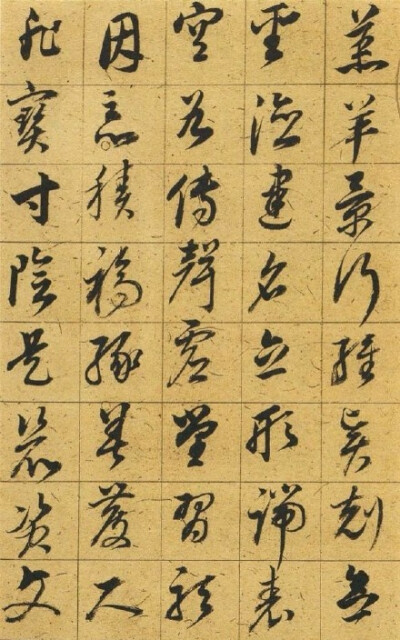 羔羊景行維賢剋念
聖德建名立形端表
空谷傳聲虛堂習聽
因惡積福緣善慶尺
非寶寸陰是競資父